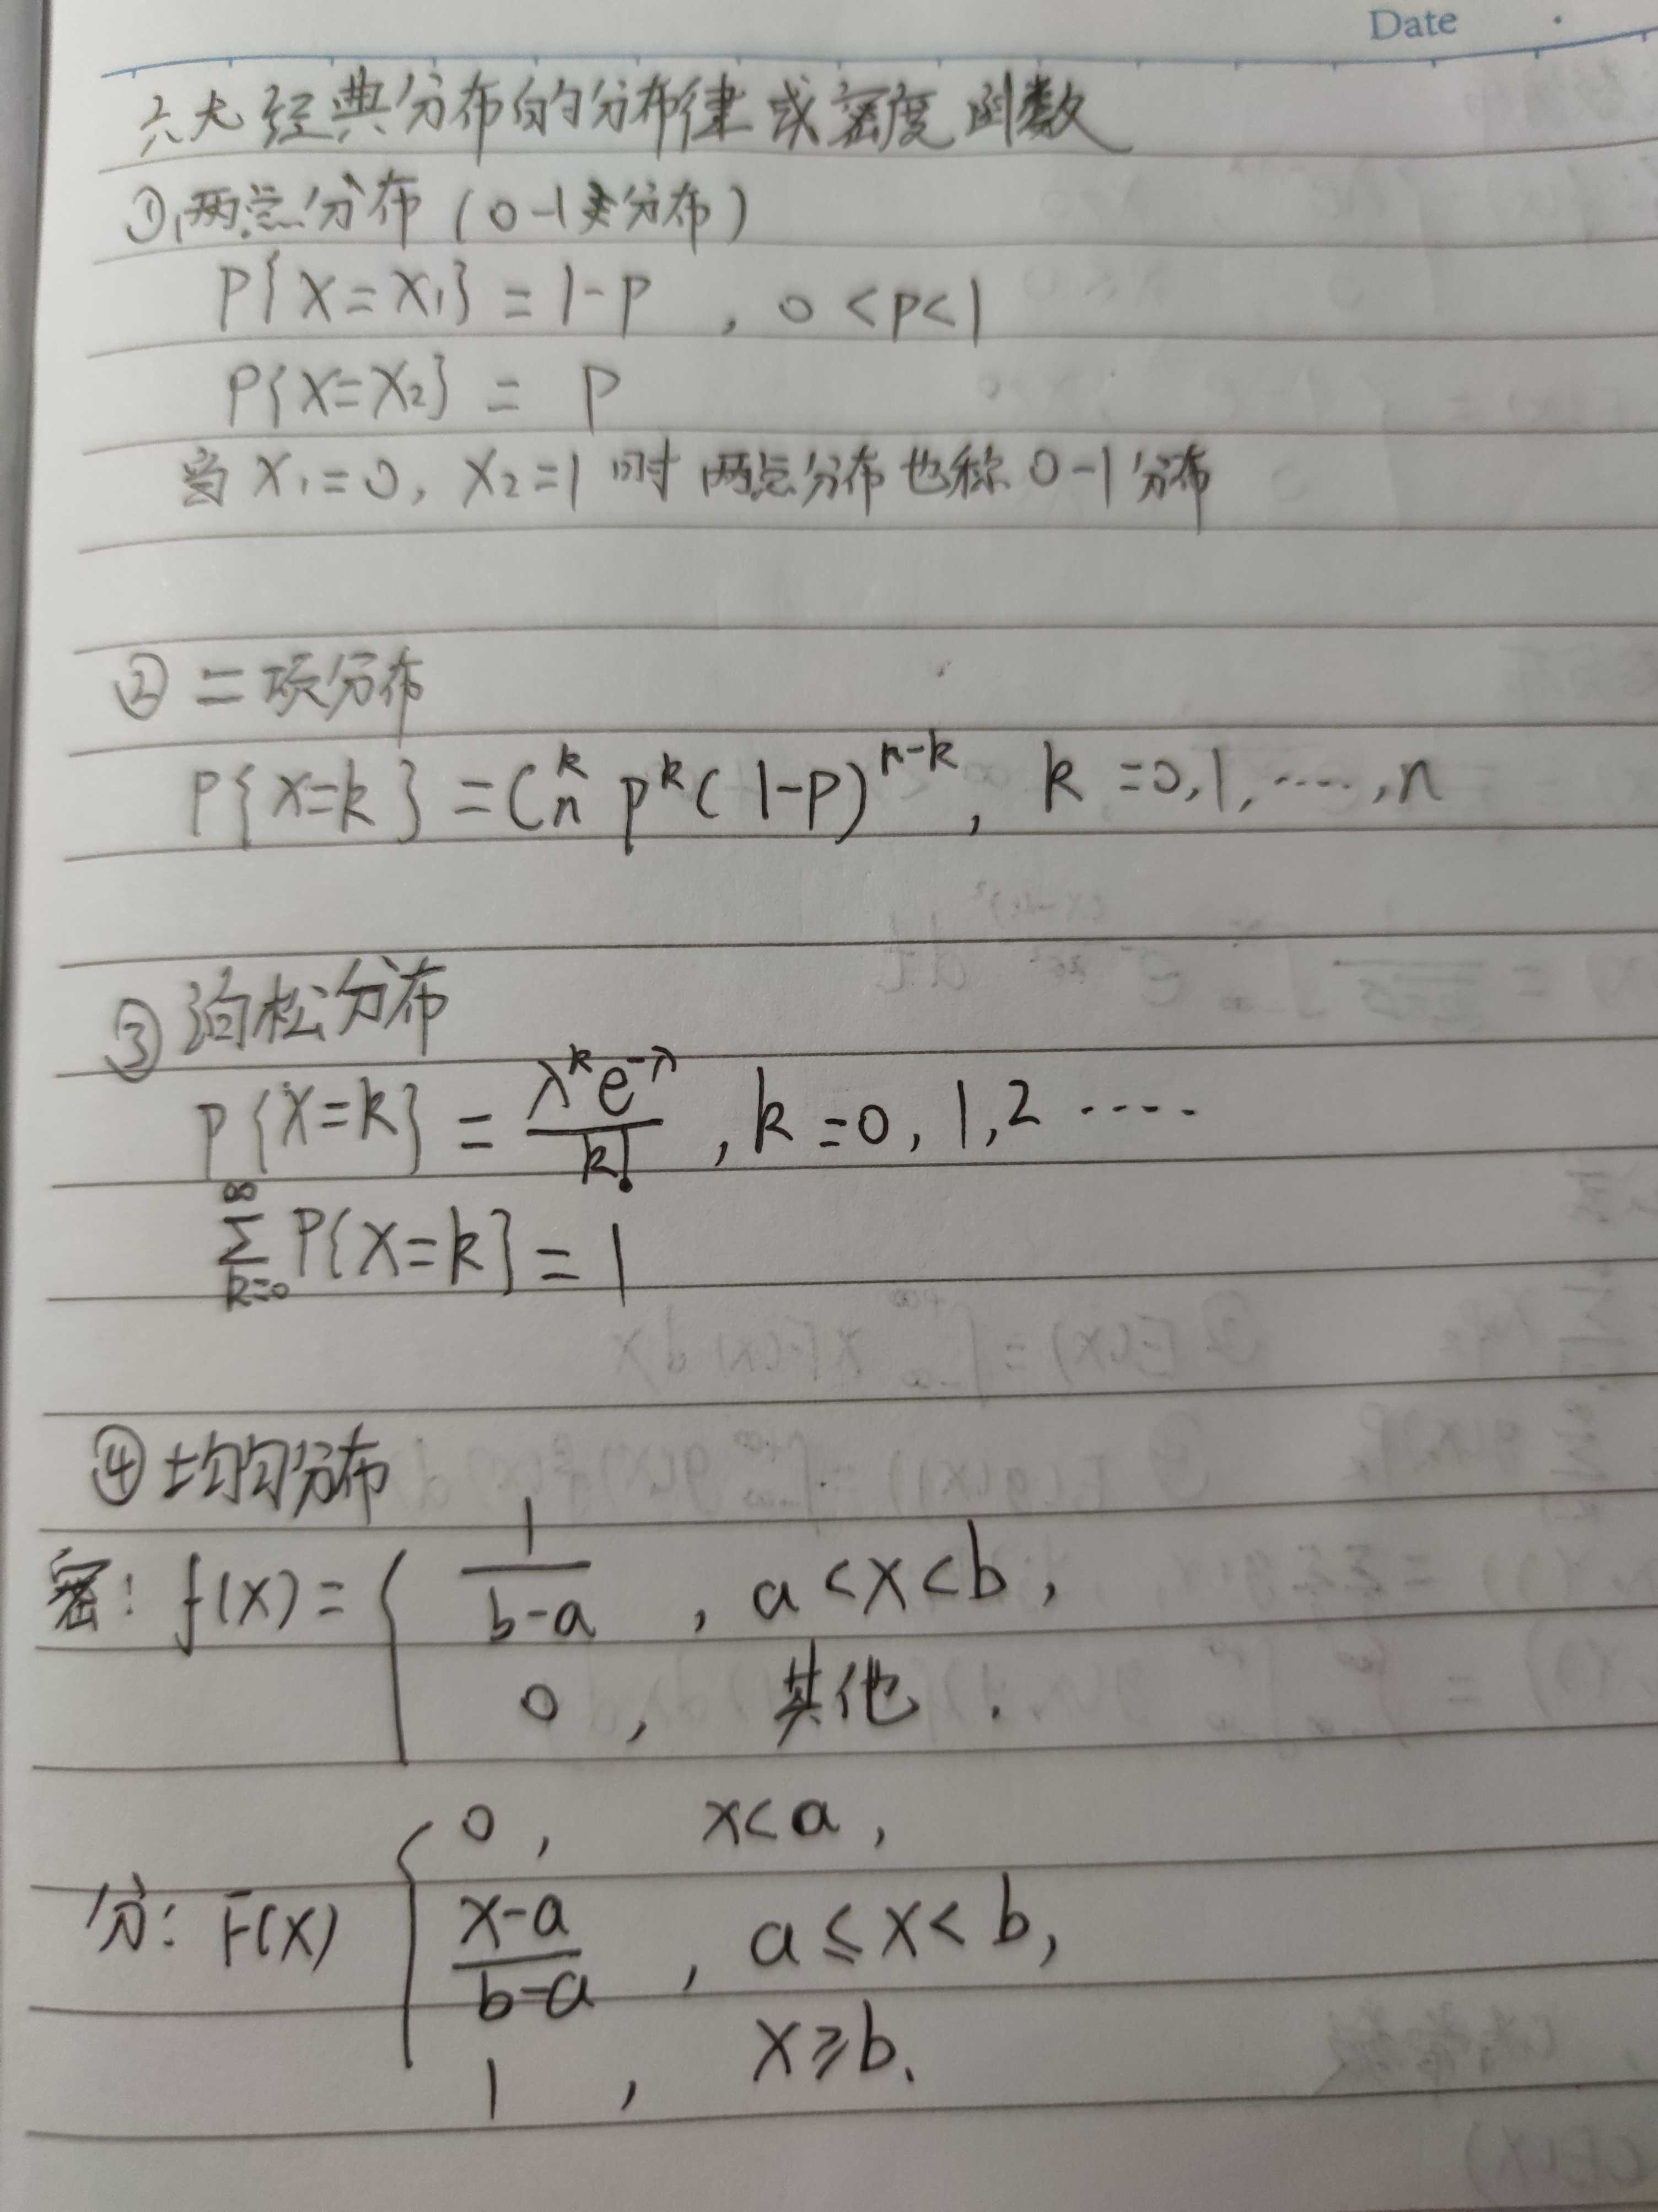 Date
六大经典分布的分布律或密度函数
①两点分布(0-1分布)
P{X=X₁}=1-P , 0<P<1
P{X=X₂} = P
当X₁=0, X₂=1时两点分布也称0-1分布
②二项分布
P{X=k}=Cₙᵏ pᵏ(1-P)ⁿ⁻ᵏ, k=0,1,……,n
③泊松分布
P{X=k} = λᵏe^-λ / k! , k=0,1,2 ……
∑ k=0 ∞ P{X=k}=1
④均匀分布
密: f(x)= { 1/(b-a) , a<x<b,
0 , 其他.
0, x<a,
分: F(X) { (x-a)/(b-a) , a≤x<b,
1 , x≥b.